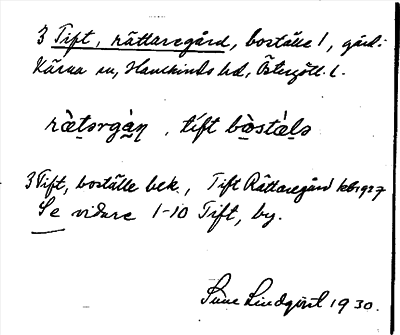 3 Tift, rättaregård, boställe 1, gård i
Kärna sn, Hanekinds hd, Östergötl. l.
rætərgàṇ, tíft bòstælə
3 Tift, boställe bek., Tift Rättaregård kb 1937
Se vidare 1-10 Tift, by.
Sune Lindqvist 1930.